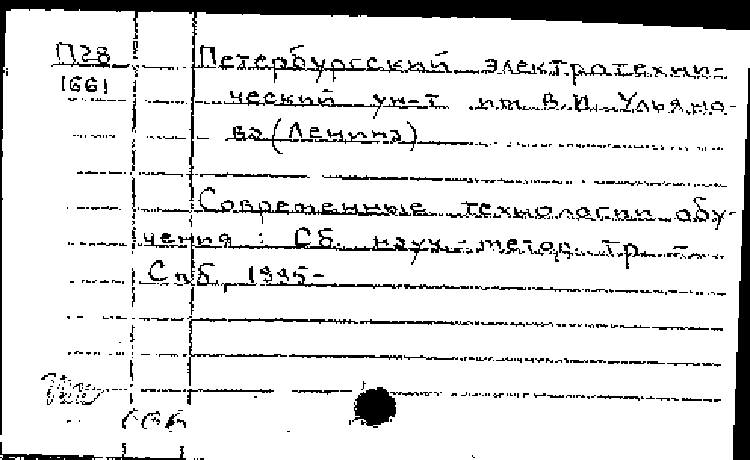 П28 Петербургский электротехни-
1661 ческий ун-т им В.И. Ульяно-
ва (Ленина)
Современные технологии обу-
чения : Сб. науч.-метод. тр. -
Спб, 1995-